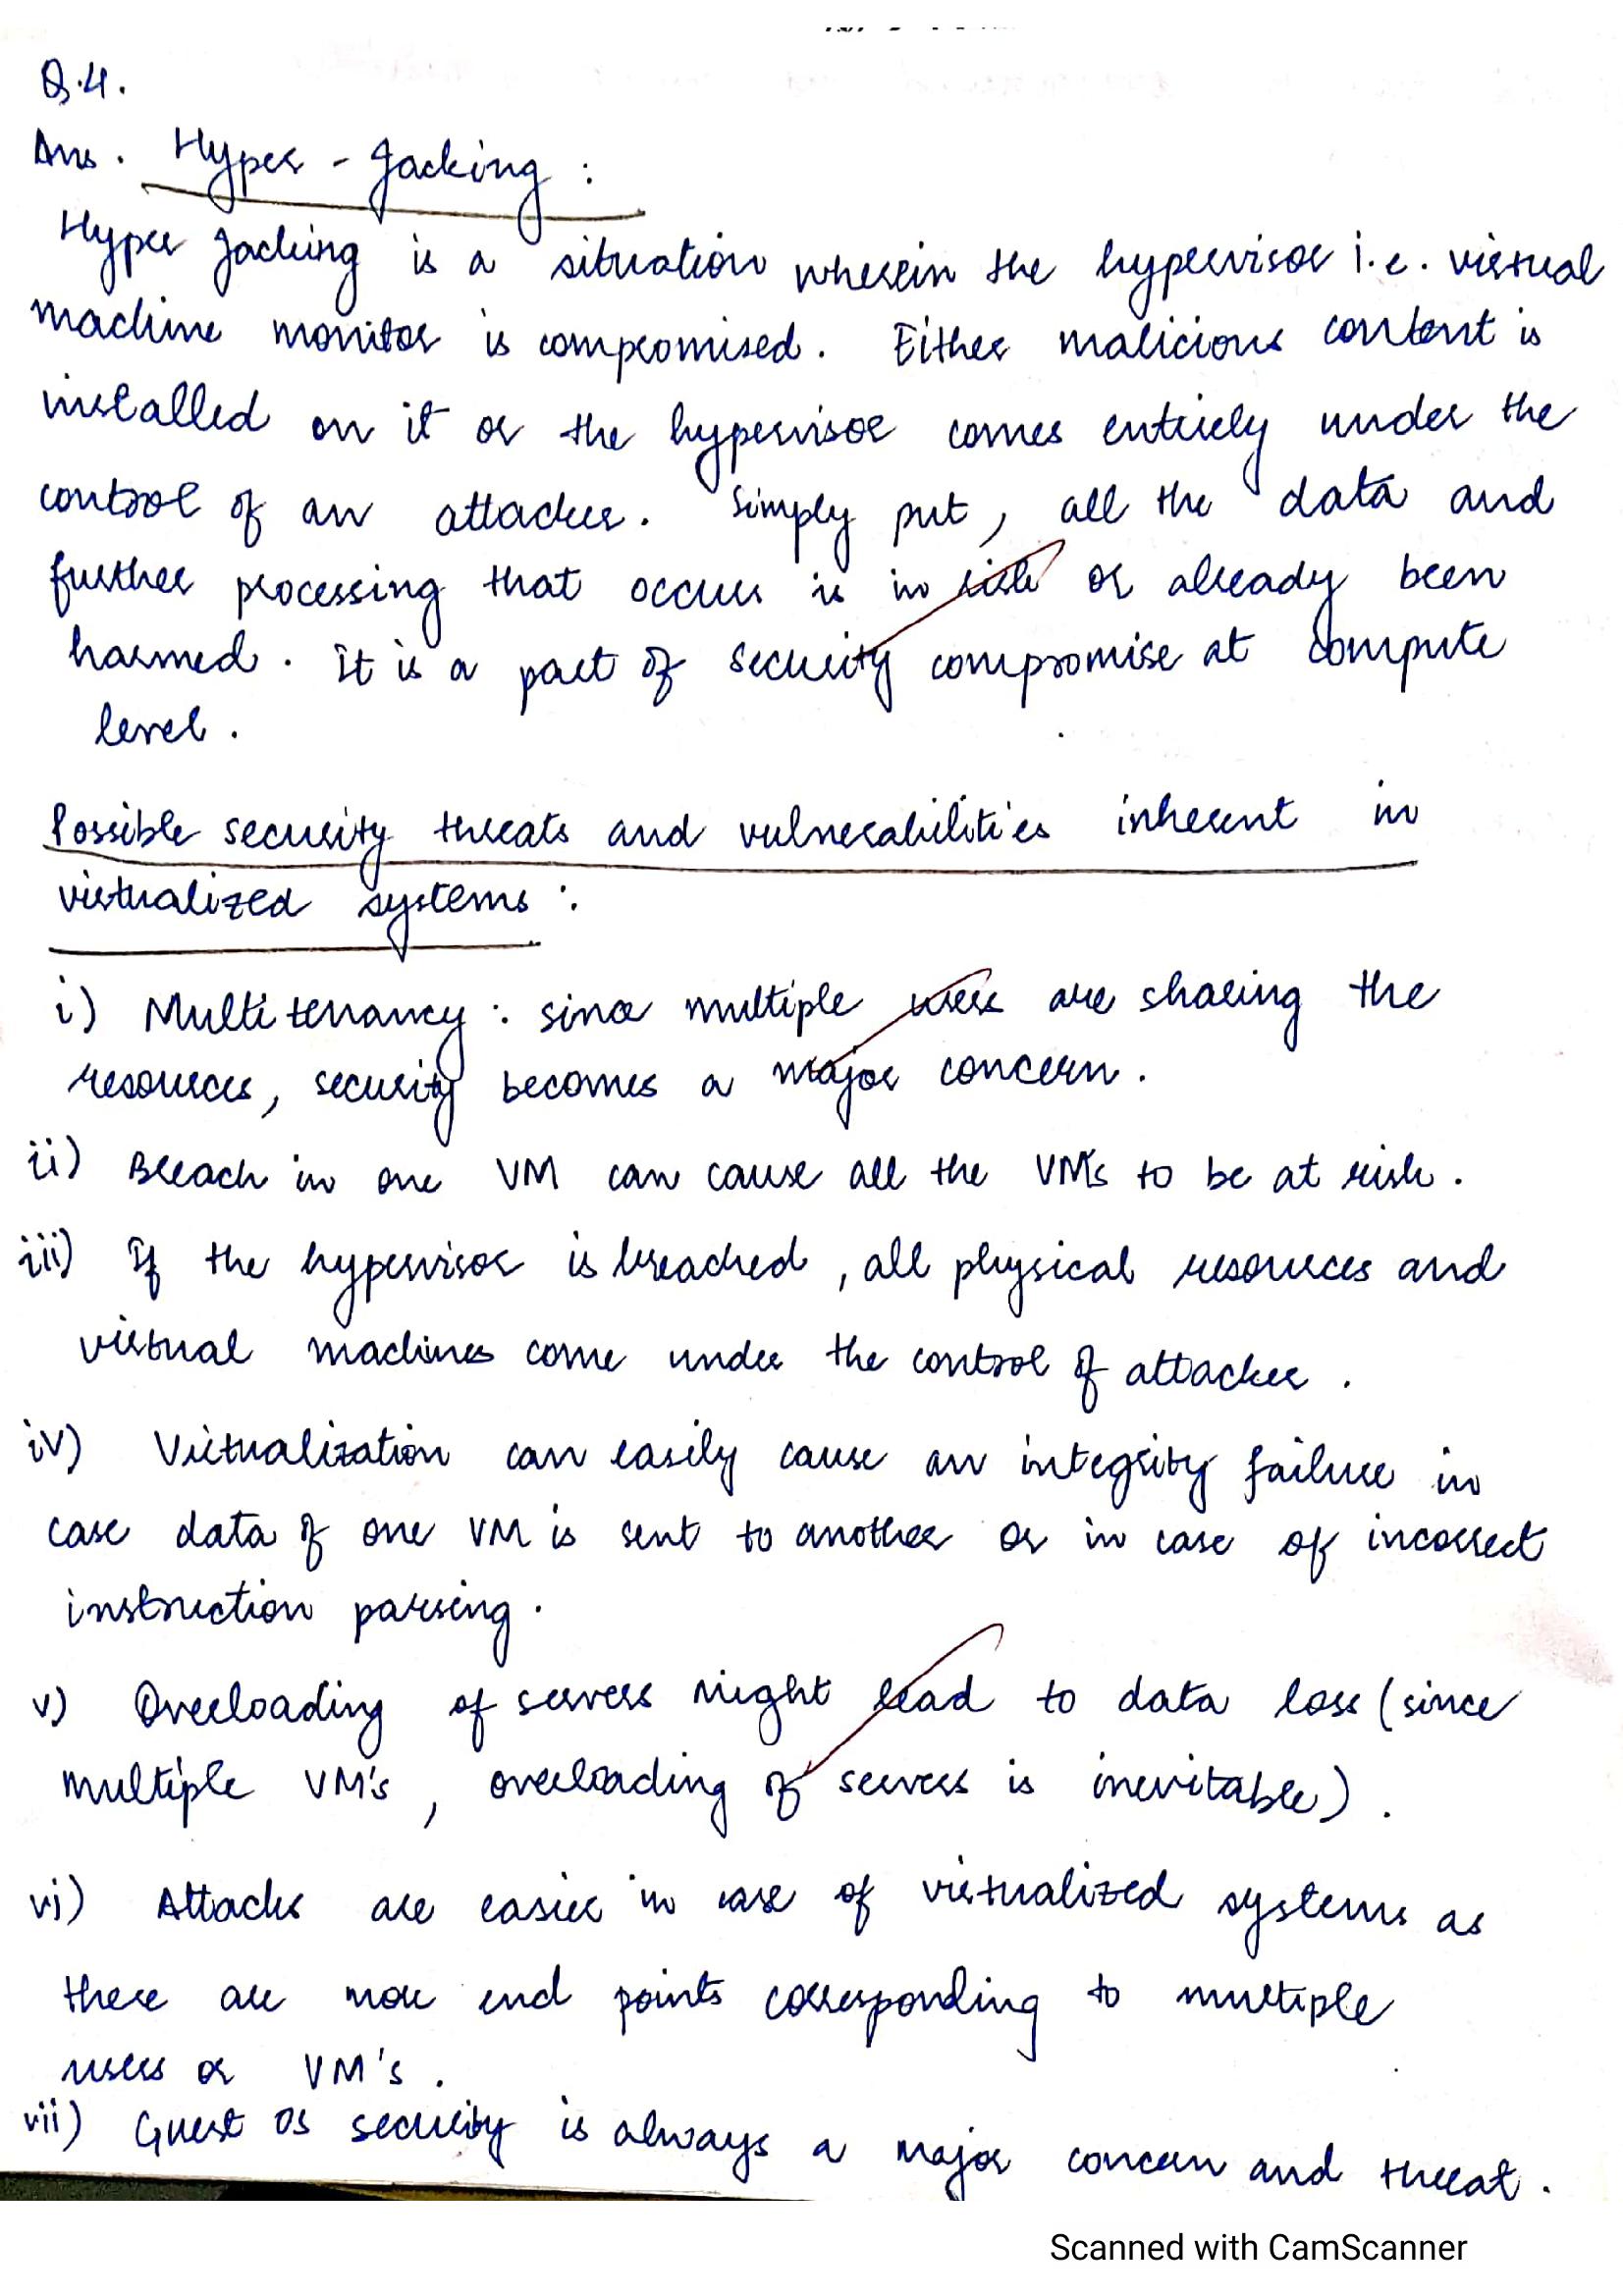 Q.4.
Ans. Hyper - Jacking :
Hyper Jacking is a situation wherein the hypervisor i.e. virtual
machine monitor is compromised. Either malicious content is
installed on it or the hypervisor comes entirely under the
control of an attacker. Simply put, all the data and
further processing that occurs is in risk or already been
harmed. It is a part of security compromise at compute
level.
Possible security threats and vulnerabilities inherent in
virtualized systems :
i) Multitenancy : since multiple users are sharing the
resources, security becomes a major concern.
ii) Breach in one VM can cause all the VM's to be at risk.
iii) If the hypervisor is breached, all physical resources and
virtual machines come under the control of attacker.
iv) Virtualization can easily cause an integrity failure in
case data of one VM is sent to another or in case of incorrect
instruction parsing.
v) Overloading of servers might lead to data loss (since
multiple VM's, overloading of servers is inevitable).
vi) Attacks are easier in case of virtualized systems as
there are more end points corresponding to multiple
users or VM's.
vii) Guest OS security is always a major concern and threat.
Scanned with CamScanner